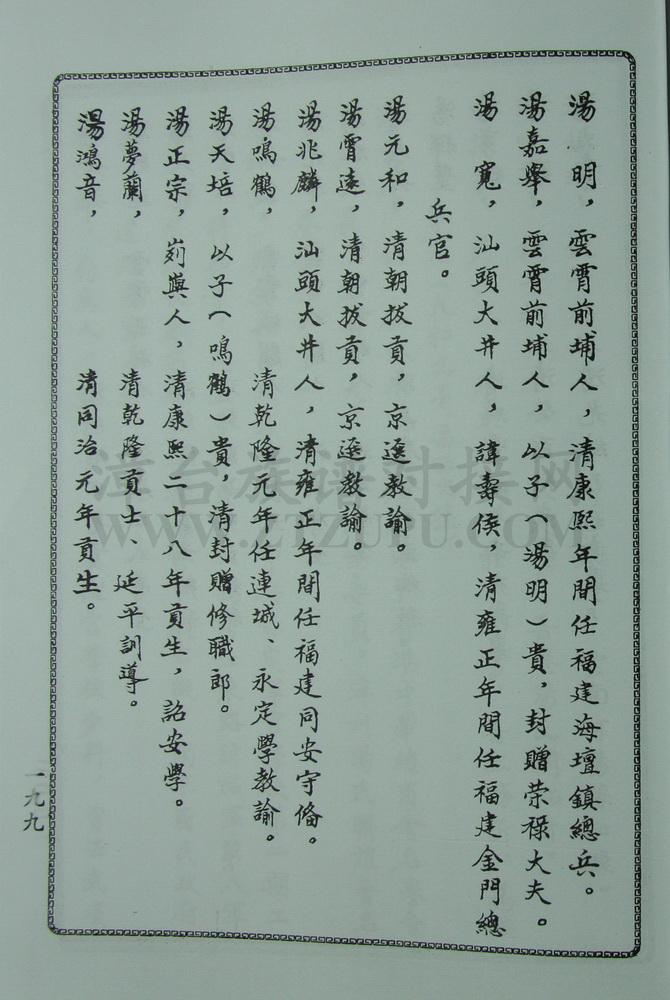 湯　明，雲霄前埔人，清康熙年間任福建海壇鎮總兵。
湯嘉舉，雲霄前埔人，以子（湯明）貴，封贈荣祿大夫。
湯　寬，汕頭大井人，諱壽侯，清雍正年間任福建金門總
兵官。
湯元和，清朝拔貢，京選教諭。
湯霄遠，清朝拔貢，京選教諭。
湯兆麟，汕頭大井人，清雍正年間任福建同安守俻。
湯鳴鶴，清乾隆元年任連城、永定學教諭。
湯天培，以子（鳴鶴）貴，清封贈修職郎。
湯正宗，峛嶼人，清康熙二十八年貢生，詔安學。
湯夢蘭，清乾隆貢士、延平訓導。
湯鴻音，清同治元年貢生。
一九九
WWW.ZTZUPU.COM